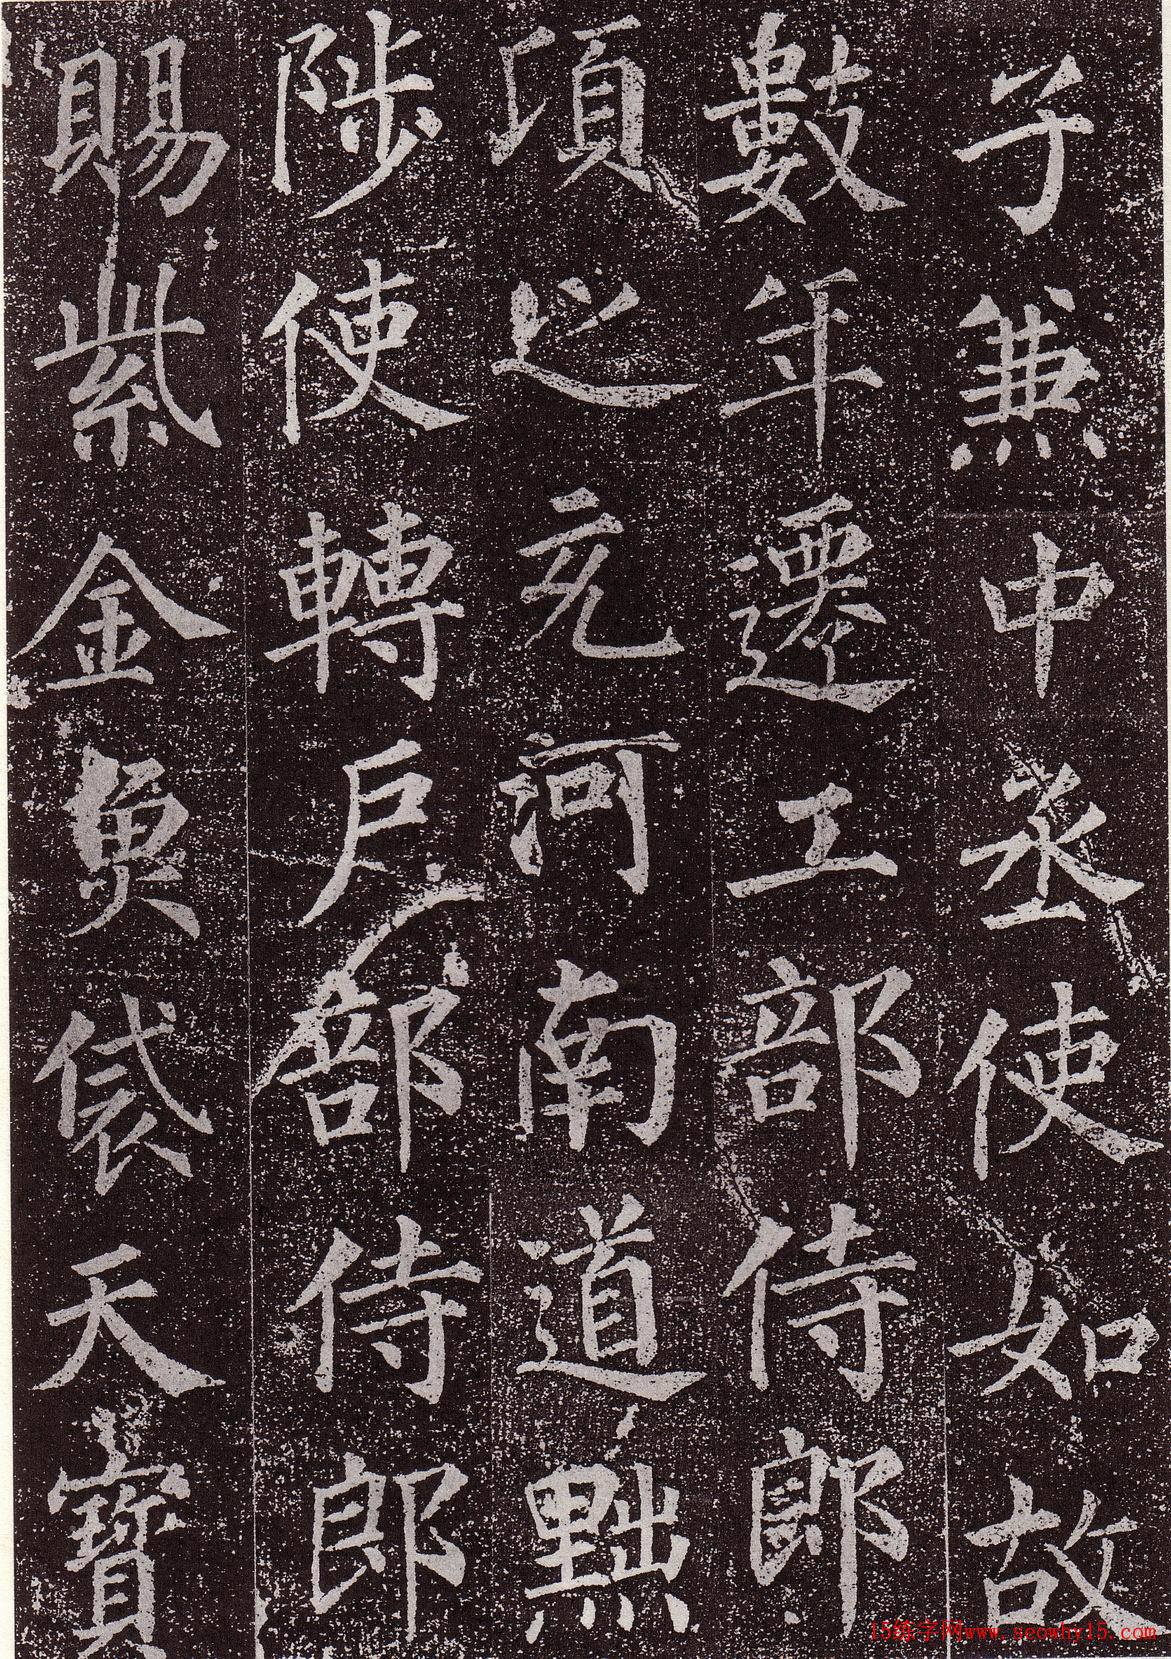 子兼中丞使如故
數年遷工部侍郎
項之充河南道黜
陟使轉戶部侍郎
賜紫金魚袋天寶
15练字网www.seowhy15.com